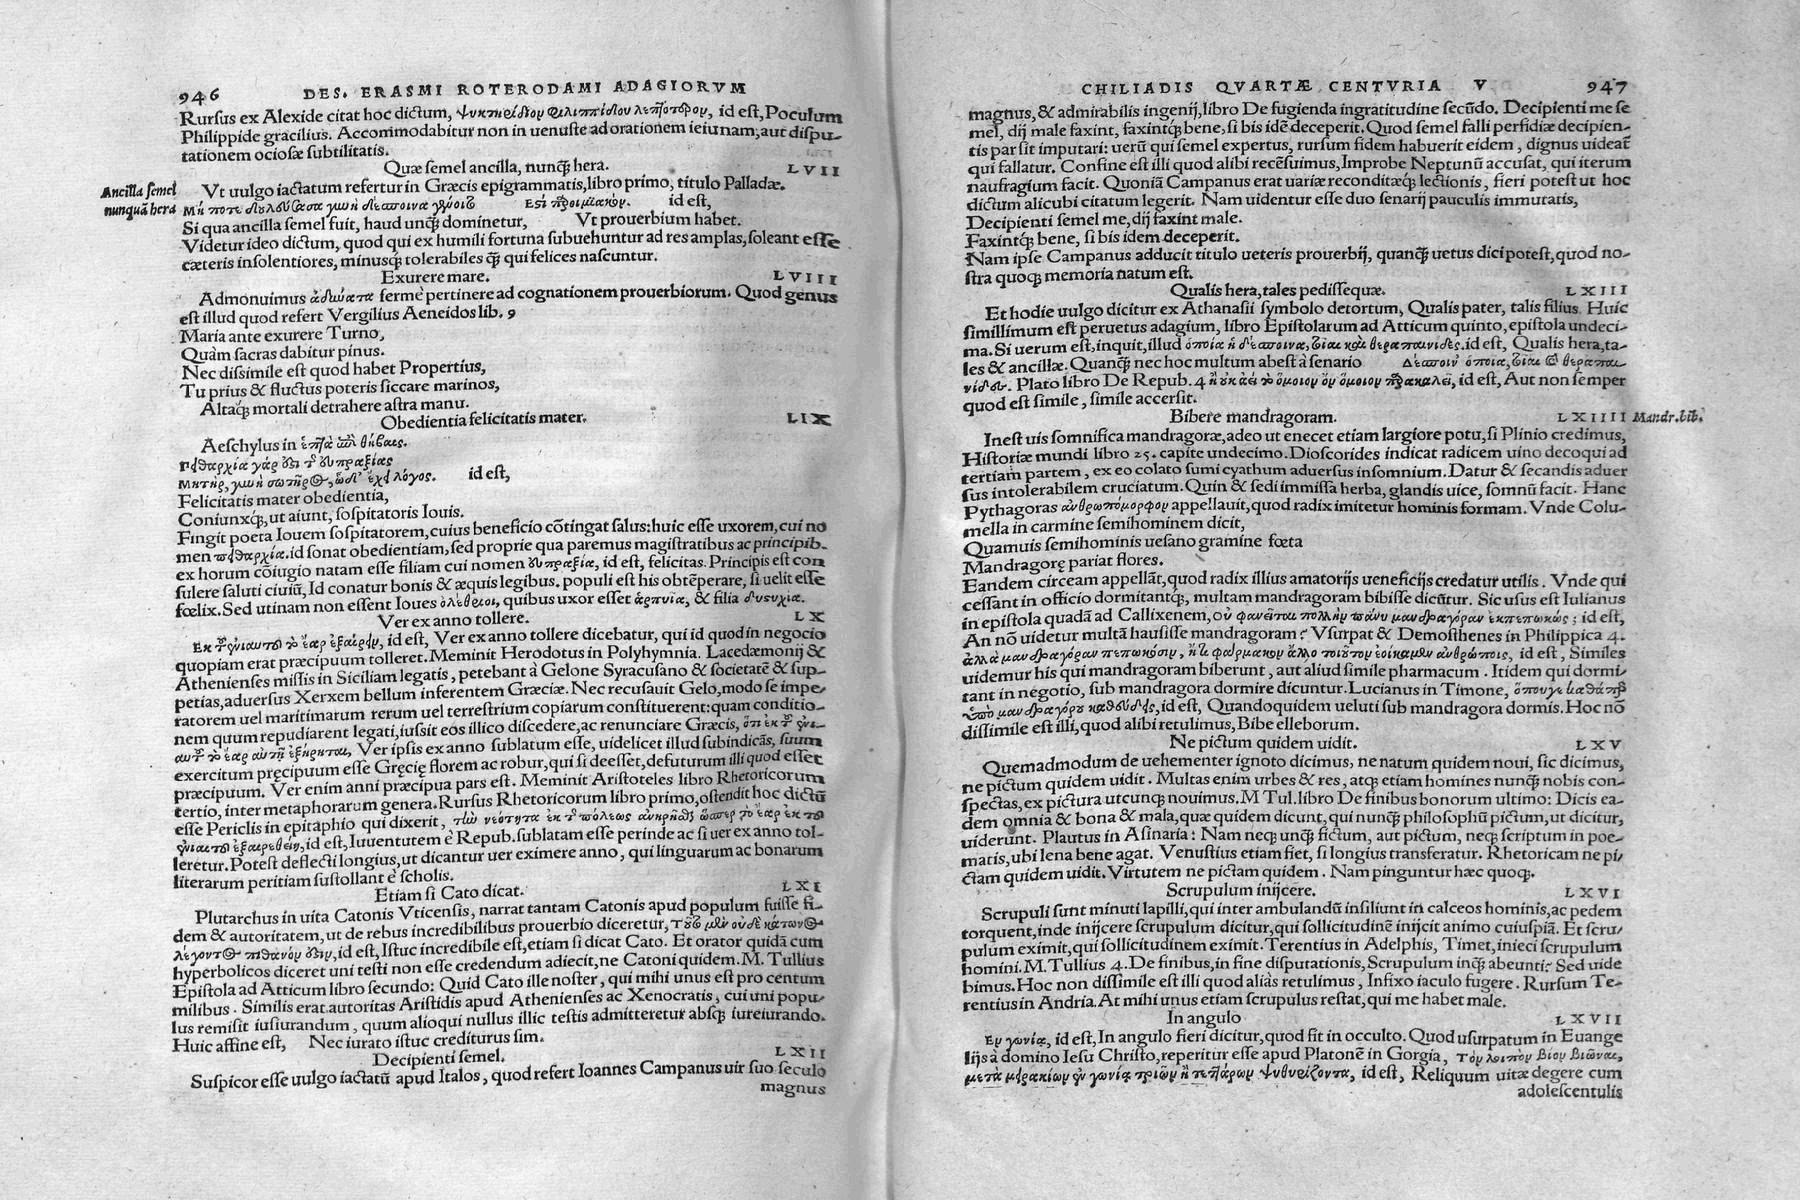 946 DES. ERASMI ROTERODAMI ADAGIORVM
Rursus ex Alexide citat hoc dictum, id est, Poculum
Philippide gracilius. Accommodabitur non in uenuste ad orationem ieiunam, aut dispu-
tationem ociosæ subtilitatis.
Quæ semel ancilla, nunqꝫ hera. LVII
Ancilla semel
nunquā hera
Vt uulgo iactatum refertur in Græcis epigrammatis, libro primo, titulo Palladæ.
id est,
Si qua ancilla semel fuit, haud unqꝫ dominetur, Vt prouerbium habet.
Videtur ideo dictum, quod qui ex humili fortuna subuehuntur ad res amplas, soleant esse
cæteris insolentiores, minusqꝫ tolerabiles qꝫ qui felices nascuntur.
Exurere mare. LVIII
Admonuimus ἀδιώατα fermè pertinere ad cognationem prouerbiorum. Quod genus
est illud quod refert Vergilius Aeneidos lib. 9
Maria ante exurere Turno,
Quàm sacras dabitur pinus.
Nec dissimile est quod habet Propertius,
Tu prius & fluctus poteris siccare marinos,
Altaqꝫ mortali detrahere astra manu.
Obedientia felicitatis mater. LIX
Aeschylus in
id est,
Felicitatis mater obedientia,
Coniunxqꝫ, ut aiunt, sospitatoris Iouis.
Fingit poeta Iouem sospitatorem, cuius beneficio cōtingat salus: huic esse uxorem, cui no
men id sonat obedientiam, sed proprie qua paremus magistratibus ac principib.
ex horum cōiugio natam esse filiam cui nomen id est, felicitas. Principis est con
sulere saluti ciuiū, Id conatur bonis & æquis legibus. populi est his obtēperare, si uelit esse
fœlix. Sed utinam non essent Ioues ὀλέθριοι, quibus uxor esset ἁρπυία, & filia
Ver ex anno tollere. LX
id est, Ver ex anno tollere dicebatur, qui id quod in negocio
quopiam erat præcipuum tolleret. Meminit Herodotus in Polyhymnia. Lacedæmonij &
Athenienses missis in Siciliam legatis, petebant à Gelone Syracusano & societatē & sup-
petias, aduersus Xerxem bellum inferentem Græciæ. Nec recusauit Gelo, modo se impe-
ratorem uel maritimarum rerum uel terrestrium copiarum constituerent: quam conditio-
nem quum repudiarent legati, iussit eos illico discedere, ac renunciare Græcis,
Ver ipsis ex anno sublatum esse, uidelicet illud subindicās, suum
exercitum pręcipuum esse Gręcię florem ac robur, qui si deesset, defuturum illi quod esset
præcipuum. Ver enim anni præcipua pars est. Meminit Aristoteles libro Rhetoricorum
tertio, inter metaphorarum genera. Rursus Rhetoricorum libro primo, ostendit hoc dictū
esse Periclis in epitaphio qui dixerit,
id est, Iuuentutem è Repub. sublatam esse perinde ac si uer ex anno tol-
leretur. Potest deflecti longius, ut dicantur uer eximere anno, qui linguarum ac bonarum
literarum peritiam sustollant è scholis.
Etiam si Cato dicat. LXI
Plutarchus in uita Catonis Vticensis, narrat tantam Catonis apud populum fuisse fi-
dem & autoritatem, ut de rebus incredibilibus prouerbio diceretur,
id est, Istuc incredibile est, etiam si dicat Cato. Et orator quidā cum
hyperbolicos diceret uni testi non esse credendum adiecit, ne Catoni quidem. M. Tullius
Epistola ad Atticum libro secundo: Quid Cato ille noster, qui mihi unus est pro centum
milibus. Similis erat autoritas Aristidis apud Athenienses ac Xenocratis, cui uni popu-
lus remisit iusiurandum, quum alioqui nullus illic testis admitteretur absqꝫ iureiurando.
Huic affine est, Nec iurato istuc crediturus sim.
Decipienti semel. LXII
Suspicor esse uulgo iactatū apud Italos, quod refert Ioannes Campanus uir suo seculo
magnus
CHILIADIS QVARTÆ CENTVRIA V 947
magnus, & admirabilis ingenij, libro De fugienda ingratitudine secūdo. Decipienti me se
mel, dij male faxint, faxintqꝫ bene, si bis idē deceperit. Quod semel falli perfidiæ decipien-
tis par sit imputari: uerū qui semel expertus, rursum fidem habuerit eidem, dignus uideat̄
qui fallatur. Confine est illi quod alibi recēsuimus, Improbe Neptunū accusat, qui iterum
naufragium facit. Quoniā Campanus erat uariæ reconditæqꝫ lectionis, fieri potest ut hoc
dictum alicubi citatum legerit. Nam uidentur esse duo senarij pauculis immutatis,
Decipienti semel me, dij faxint male.
Faxintqꝫ bene, si bis idem deceperit.
Nam ipse Campanus adducit titulo ueteris prouerbij, quanqꝫ uetus dici potest, quod no-
stra quoqꝫ memoria natum est.
Qualis hera, tales pedissequæ. LXIII
Et hodie uulgo dicitur ex Athanasii symbolo detortum, Qualis pater, talis filius. Huic
simillimum est peruetus adagium, libro Epistolarum ad Atticum quinto, epistola undeci-
ma. Si uerum est, inquit, illud id est, Qualis hera, ta-
les & ancillæ. Quanqꝫ nec hoc multum abest à senario
Plato libro De Repub. 4 id est, Aut non semper
quod est simile, simile accersit.
Bibere mandragoram. LXIIII Mandr. bib.
Inest uis somnifica mandragoræ, adeo ut enecet etiam largiore potu, si Plinio credimus,
Historiæ mundi libro 25. capite undecimo. Dioscorides indicat radicem uino decoqui ad
tertiam partem, ex eo colato sumi cyathum aduersus insomnium. Datur & secandis aduer
sus intolerabilem cruciatum. Quin & sedi immissa herba, glandis uice, somnū facit. Hanc
Pythagoras ἀνθρωπόμορφον appellauit, quod radix imitetur hominis formam. Vnde Colu-
mella in carmine semihominem dicit,
Quamuis semihominis uesano gramine fœta
Mandragorę pariat flores.
Eandem circeam appellāt, quod radix illius amatorijs ueneficijs credatur utilis. Vnde qui
cessant in officio dormitantqꝫ, multam mandragoram bibisse dicūtur. Sic usus est Iulianus
in epistola quadā ad Callixenem, οὐ φαίνεται πολλὴν πάνυ μανδραγόραν ἐκπεπωκώς; id est,
An nō uidetur multā hausisse mandragoram? Vsurpat & Demosthenes in Philippica 4.
id est, Similes
uidemur his qui mandragoram biberunt, aut aliud simile pharmacum. Itidem qui dormi-
tant in negotio, sub mandragora dormire dicuntur. Lucianus in Timone,
id est, Quandoquidem ueluti sub mandragora dormis. Hoc nō
dissimile est illi, quod alibi retulimus, Bibe elleborum.
Ne pictum quidem uidit. LXV
Quemadmodum de uehementer ignoto dicimus, ne natum quidem noui, sic dicimus,
ne pictum quidem uidit. Multas enim urbes & res, atqꝫ etiam homines nunqꝫ nobis con-
spectas, ex pictura utcunqꝫ nouimus. M Tul. libro De finibus bonorum ultimo: Dicis ea-
dem omnia & bona & mala, quæ quidem dicunt, qui nunqꝫ philosophū pictum, ut dicitur,
uiderunt. Plautus in Asinaria: Nam neqꝫ unqꝫ fictum, aut pictum, neqꝫ scriptum in poe-
matis, ubi lena bene agat. Venustius etiam fiet, si longius transferatur. Rhetoricam ne pi-
ctam quidem uidit. Virtutem ne pictam quidem. Nam pinguntur hæc quoqꝫ.
Scrupulum inijcere. LXVI
Scrupuli sunt minuti lapilli, qui inter ambulandū insiliunt in calceos hominis, ac pedem
torquent, inde inijcere scrupulum dicitur, qui sollicitudinē inijcit animo cuiuspiā. Et scru-
pulum eximit, qui sollicitudinem eximit. Terentius in Adelphis, Timet, inieci scrupulum
homini. M. Tullius 4. De finibus, in fine disputationis, Scrupulum inqꝫ abeunti? Sed uide
bimus. Hoc non dissimile est illi quod aliàs retulimus, Infixo iaculo fugere. Rursum Te-
rentius in Andria. At mihi unus etiam scrupulus restat, qui me habet male.
In angulo LXVII
Ἐν γωνίᾳ, id est, In angulo fieri dicitur, quod fit in occulto. Quod usurpatum in Euange
lijs à domino Iesu Christo, reperitur esse apud Platonē in Gorgia, τὸν λοιπὸν βίον βιῶναι,
id est, Reliquum uitæ degere cum
adolescentulis